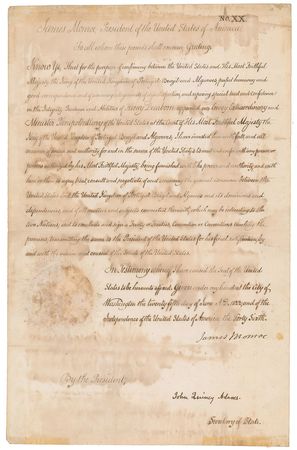 No. XX.
James Monroe, President of the United States of America,
To all whom these presents shall concern, Greeting:
Know Ye, That for the purpose of confirming between the United States and His Most Faithful
Majesty, the King of the United Kingdom of Portugal, Brazil and Algarves, perfect harmony and
good correspondence and reposing special trust and confidence
in the Integrity, Prudence and Abilities of Henry Dearborn appointed Envoy Extraordinary and
Minister Plenipotentiary of the United States at the Court of His Most Faithful Majesty the
King of the United Kingdom of Portugal, Brazil and Algarves, I have invested him with full and all
manner of power and authority for and in the name of the United States to meet and confer with any person or
persons authorized by His Most Faithful Majesty being furnished with like power and authority and with
him or them to agree, treat, consult and negotiate of and concerning the general commerce between the
United States and the United Kingdom of Portugal, Brazil and Algarves and its dominions and
dependencies, and of all matters and subjects connected therewith which may be interesting to the
two Nations, and to conclude and sign a Treaty or Treaties, Convention or Conventions touching the
premises, transmitting the same to the President of the United States for his final ratification by
and with the advice and consent of the Senate of the United States.
In Testimony whereof, I have caused the Seal of the United
States to be hereunto affixed. Given under my hand at the City of
Washington the twenty fifth day of June A.D. 1822; and of the
Independence of the United States of America, the Forty Sixth.
James Monroe
By the President,
John Quincy Adams.
Secretary of State.